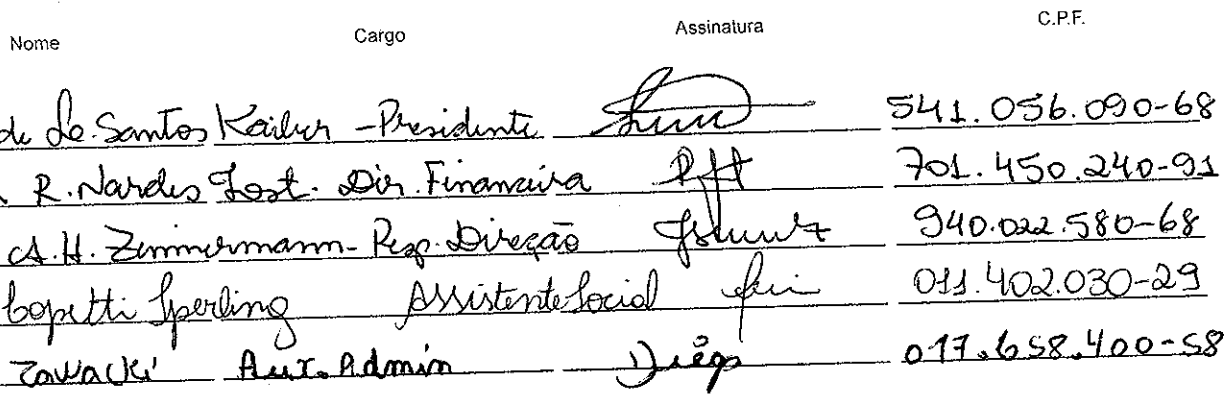 Nome Cargo Assinatura C.P.F.
de de Santos Kailer - Presidente 541.056.090-68
R. Nardes Tost. Dir. Financeira 701.450.240-91
A.H. Zimmermann - Resp. Direção 940.022.580-68
Copetti Sperling Assistente Social 011.402.030-29
Zawacki Aux. Admin Diêgo 017.658.400-58